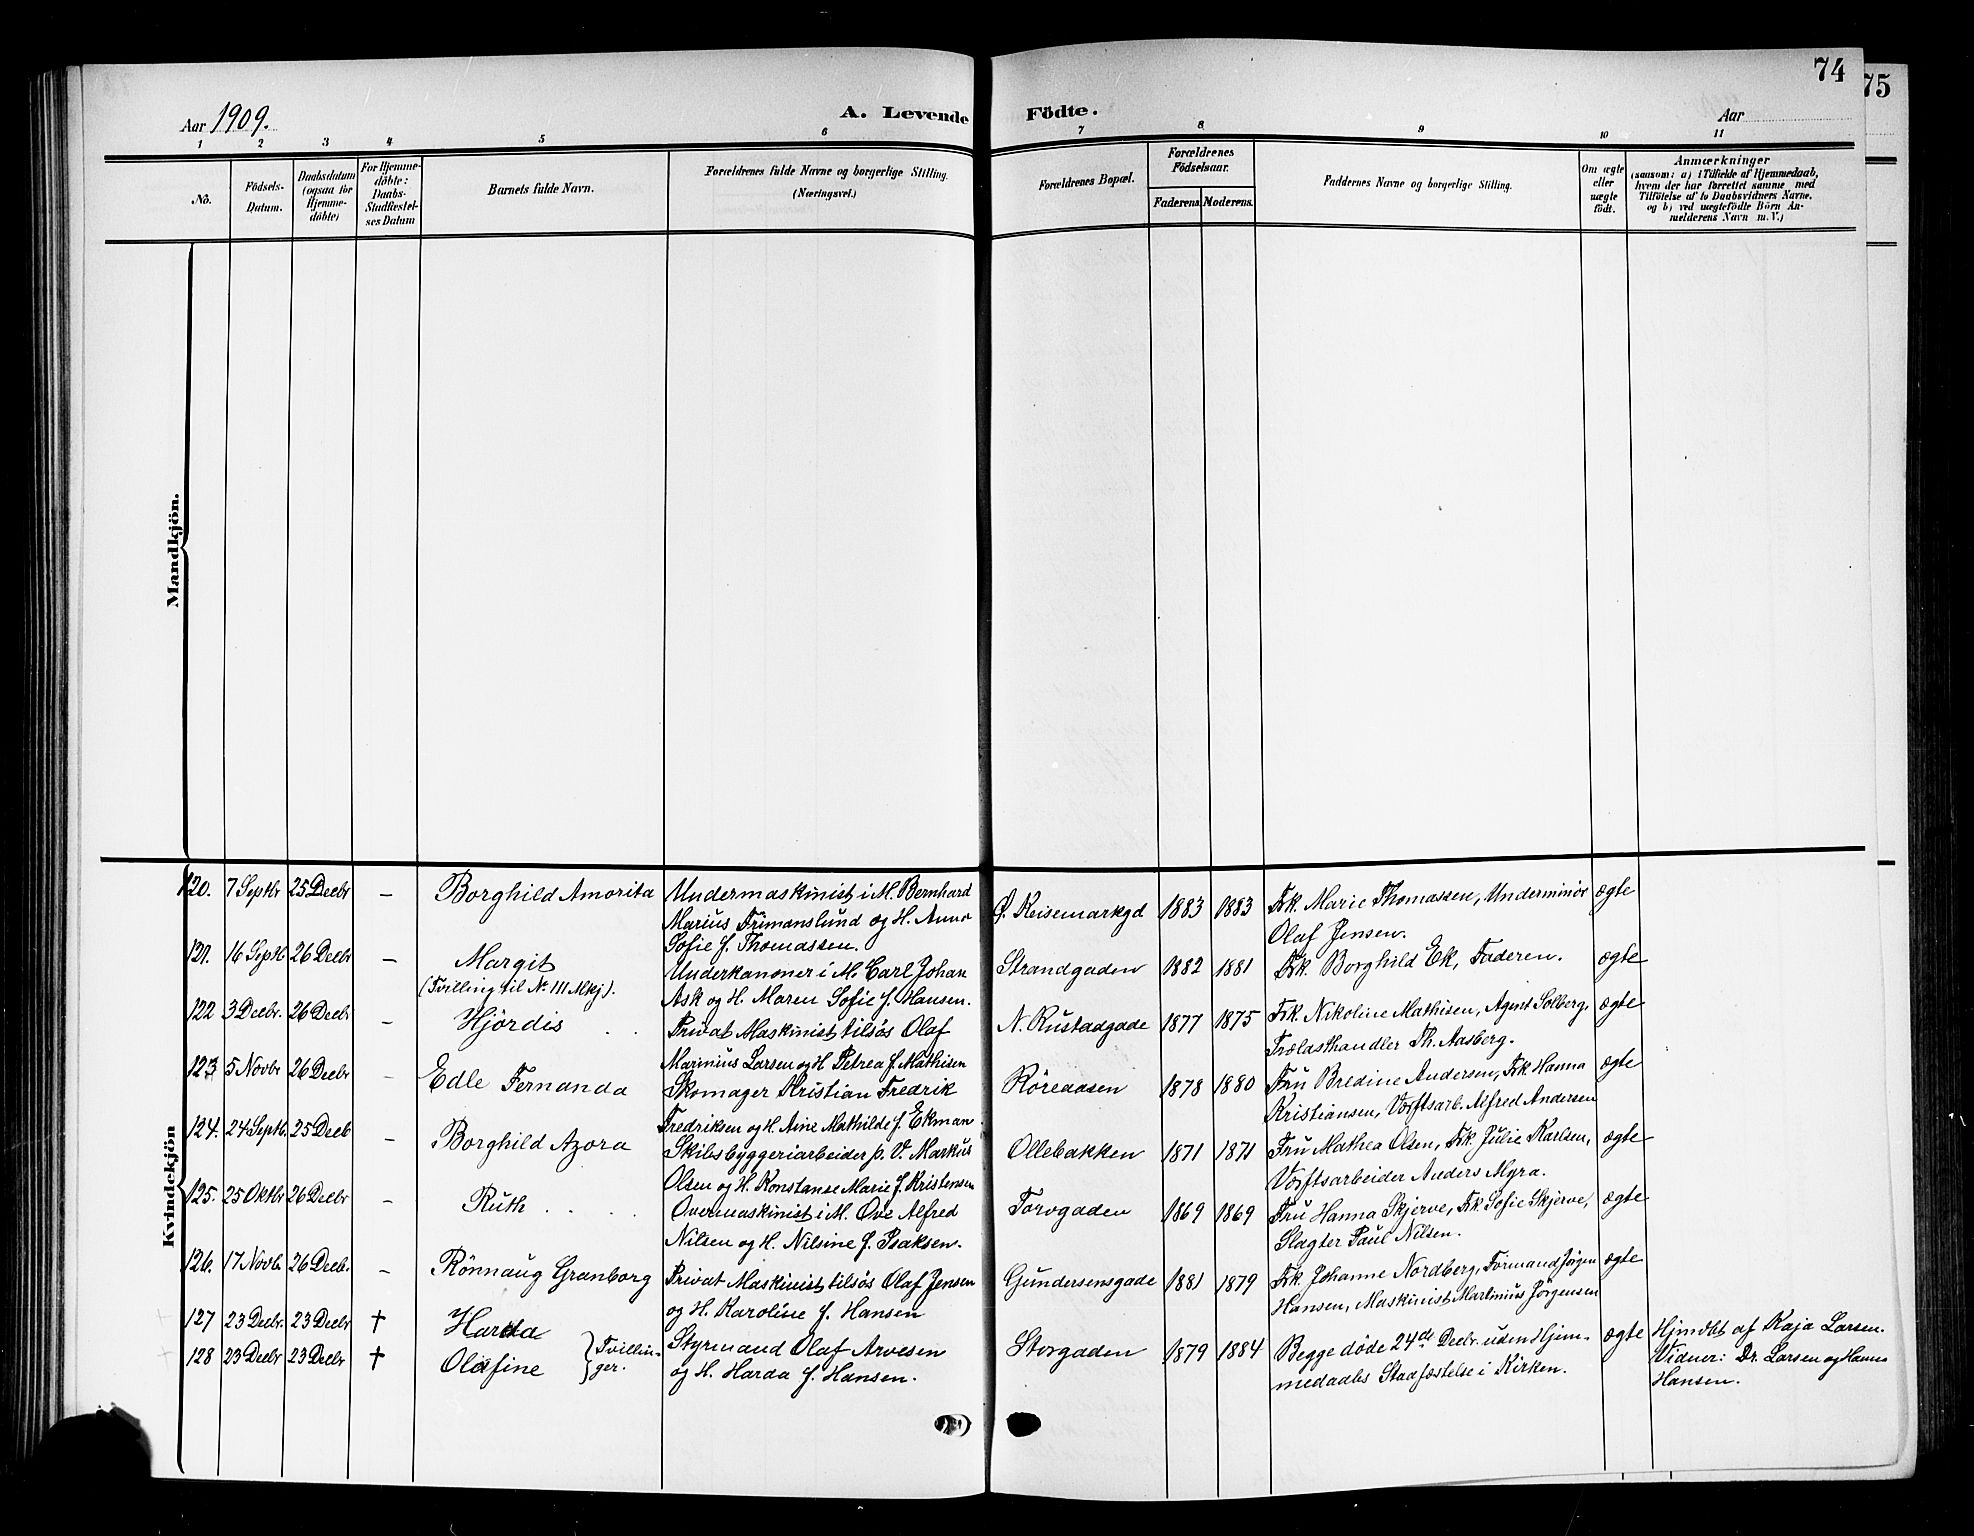 74
75
Aar 1909.
A. Levende Födte.
Aar
1 2 3 4 5 6 7 8 9 10 11
No.
Födsels-Datum.
Daabsdatum (ogsaa for Hjemme-döbte)
For Hjemme-döbte: Daabs-Stadfæstel-ses Datum
Barnets fulde Navn.
Forældrenes fulde Navne og borgerlige Stilling. (Næringsvei.)
Forældrenes Bopæl.
Forældrenes Födselsaar.
Faderens. Moderens.
Faddernes Navne og borgerlige Stilling.
Om ægte eller uægte födt.
Anmærkninger
(saasom: a) i Tilfælde af Hjemmedaab,
hvem der har forrettet samme, med
Tilföielse af to Daabsvidners Navne,
og b) ved uægtefödte Börn An-
melderens Navn m. V.)
Mandkjön.
Kvindekjön
120. 7 Septbr 25 Decbr – Borghild Amorita Undermaskinist i M. Bernhard Ø. Keisemarkgd 1883 1883 Frk. Marie Thomassen, Underminör ægte
Marius Frimanslund og H. Anna Olaf Jensen.
Sofie f. Thomassen.
121. 16 Septb 26 Decbr – Margit Underkanoner i M. Carl Johan Strandgaden 1882 1881 Frk. Borghild Ek, Faderen. ægte
(Tvilling til No. 111 Mkj). Ask og H. Maren Sofie f. Hansen.
122 3 Decbr. 26 Decbr – Hjördis Privat Maskinist tilsös Olaf N. Rustadgade 1877 1875 Frk. Nikoline Mathisen, Agent Solberg, ægte
Marinius Larsen og H Petrea f. Mathisen Trælasthandler Th. Aasberg.
123 5 Novbr 26 Decbr – Edle Fernanda Skomager Kristian Fredrik Röreaasen 1878 1880 Fru Bredine Andersen, Frk. Hanna ægte
Fredriksen og H. Aine Mathilde f. Ekman. Kristiansen, Værftsarb. Alfred Andersen
124. 24 Septb. 25 Decb – Borghild Azora Skibsbyggeriarbeider p. V. Markus Ollebakken 1871 1871 Fru Mathea Olsen, Frk. Julie Karlsen, ægte
Olsen og H. Konstanse Marie f. Kristensen Værftsarbeider Anders Myra.
125. 25 Oktbr 26 Decbr – Ruth Overmaskinist i M. Ove Alfred Torvgaden 1869 1869 Fru Hanna Skjerve, Frk. Sofie Skjerve, ægte
Nilsen og H. Nilsine f. Isaksen. Slagter Paul Nilsen.
126. 17 Novb. 26 Decb. – Rönnaug Granborg Privat Maskinist tilsös Olaf Jensen Gundersensgade 1881 1879 Frk. Johanne Nordberg, Formand Jörgen ægte
og H. Karoline f. Hansen Hansen, Maskinist Martinius Jörgensen
127 23 Decbr. 23 Decbr † Harda Styrmand Olaf Arvesen Storgaden 1879 1884 Begge döde 24de Decbr. uden Hjem- ægte Hjmdbt af Kaja Larsen.
128 23 Decbr 23 Decbr † Olafine } Tvillin-ger. og H. Harda f. Hansen. medaabs Stadfæstelse i Kirken. Vidner: Dr. Larsen og Hanna
Hansen.